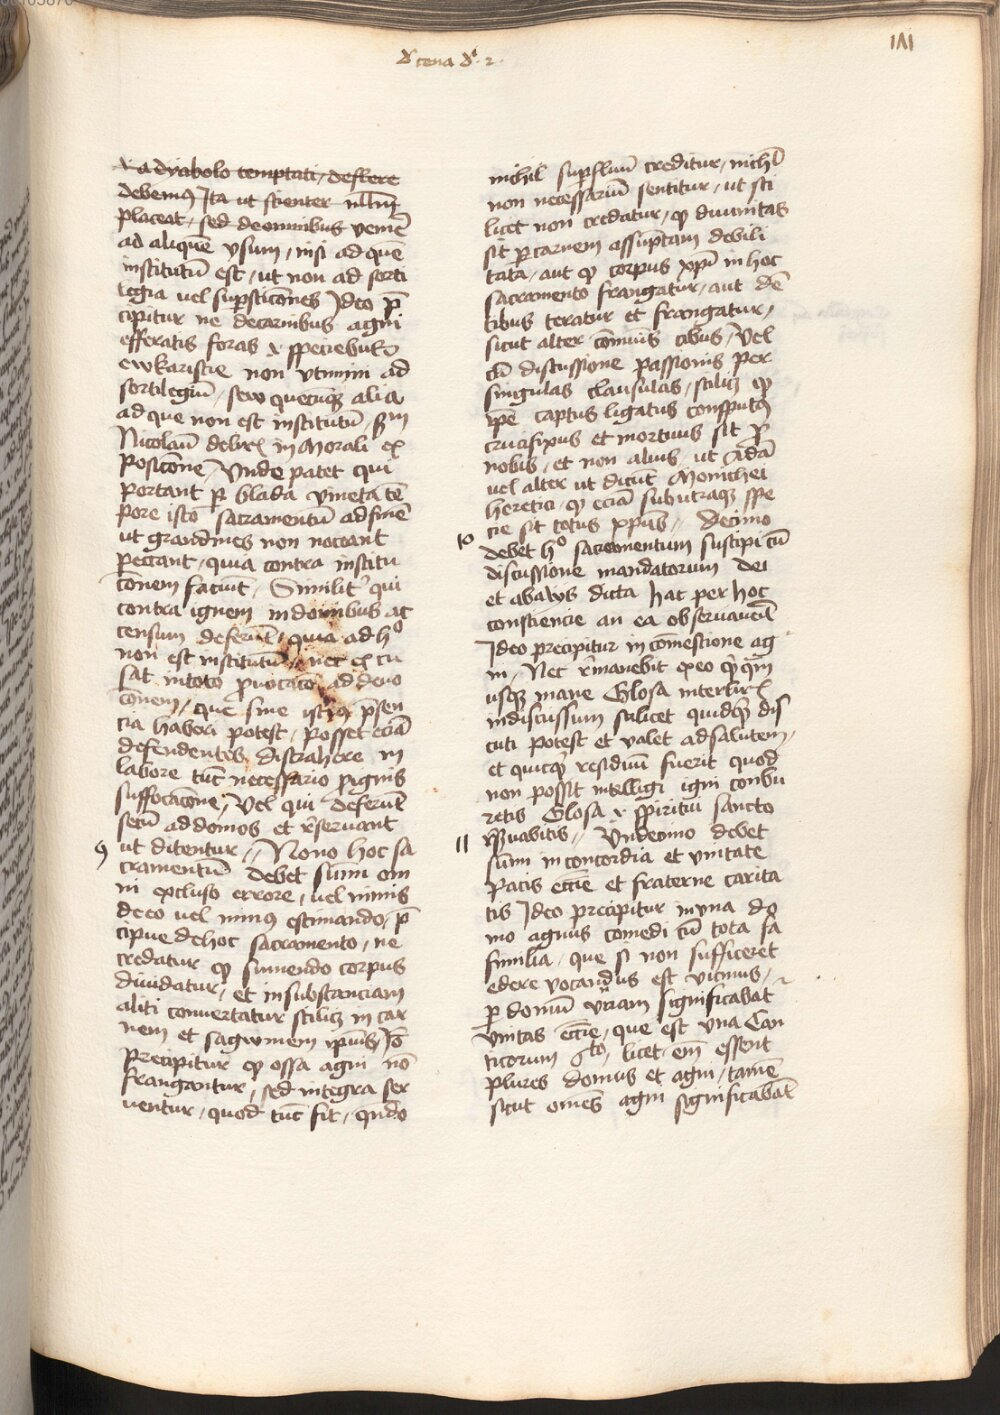 181
d' cena d' 2
a dyabolo temptati, deflere
debemus Ita ut scienter
placeat, sed de omnibus
ad aliquē vsum, nisi ad quē
institutū est, ut non ad sorti
legia uel supsticōnes Ideo p̄
cipitur ne decarnibus agni
efferatis foras
ewkaristie non vtimini ad
sortilegiū, sew quecūq alia
ad que non est institutū,
Nicolaū in Morali ex
posicōne, Vnde patet qui
portant p blada vineta tē
pore isto sacramentū ad finē
ut grandines non noceant
peccant, quia contra institu
cōnem faciūt, Similit' qui
contra ignem indomibus ac
censum deferūt, quia ad hº
non est institutū, nec excu
sat intoto ad deuo
cōnem, que sine p̄sen
cia haberi potest, posset eciā
defendentes distrahere in
labore tūc necessario
suffocacōne, Vel qui deferūt
secū ad domos et r̄seruant
9 ut ditentur, Nono hoc sa
cramentū debet sumi om
ni excluso errore, uel nimis
deeo uel minus estimando, p̄
cipue dehoc sacramento, ne
credatur qp sumendo corpus
diuidatur, et insubstanciam
aliti conuertatur scilicz in car
nem et sagwinem ipius, Iō
precipitur qp ossa agni nō
frangantur, sed integra ser
uentur, quod tūc fit, qn̄do
nichil supfluū creditur, nichil
non necessariū sentitur, ut sci
licet non credatur, qp diuinitas
sit p carnem assūptam debili
tata, aut qp corpus xpi in hoc
sacramento frangatur, aut dē
tibus teratur et frangatur,
sicut alter cōmūis cibus, Vel
cū discussione passionis per
singulas clausulas, scilicz qp
ip̄e captus ligatus consputus
crucifixus et mortuus sit p
nobis, et non alius, ut Adā
uel alter ut dicūt Monichei
heretici, qp eciā sub utraq spe
cie sit totus xp̄us, Decimo
10 debet hº sacramentum suscipi cū
discussione mandatorum dei
et abaliis dicta hac per hoc
consciencie an ea obseruauerit
Ideo precipitur in comestione ag
ni, Nec r̄manebit exeo q̄cq̄m
usq mane Glosa interlix
indiscussum scilicet quidq̄ dis
cuti potest et valet ad salutem,
et quicq̄ residuū fuerit quod
non possit intelligi igni conbu
retis Glosa spiritui sancto
11 Vndecimo debet
sumi in concordia et vnitate
pacis eccīe et fraterne carita
tis Ideo precipitur in vna do
mo agnus comedi cū tota fa
milia, que si non sufficeret
edere vocandus est vicinus,
p domū significabat
vnitas eccīe, que est vna Can
ticorum 6to, licet em̄ essent
plures domus et agni, tamē
sicut omēs agni significabāt